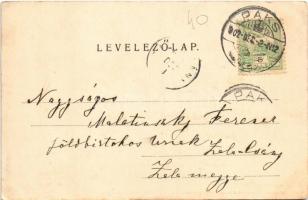 40
PAKS
LEVELEZŐ-LAP.
PAKS
Nagyságos
Malatinszky Ferencz
földbirtokos úrnak Zala-Csány
Zala megye